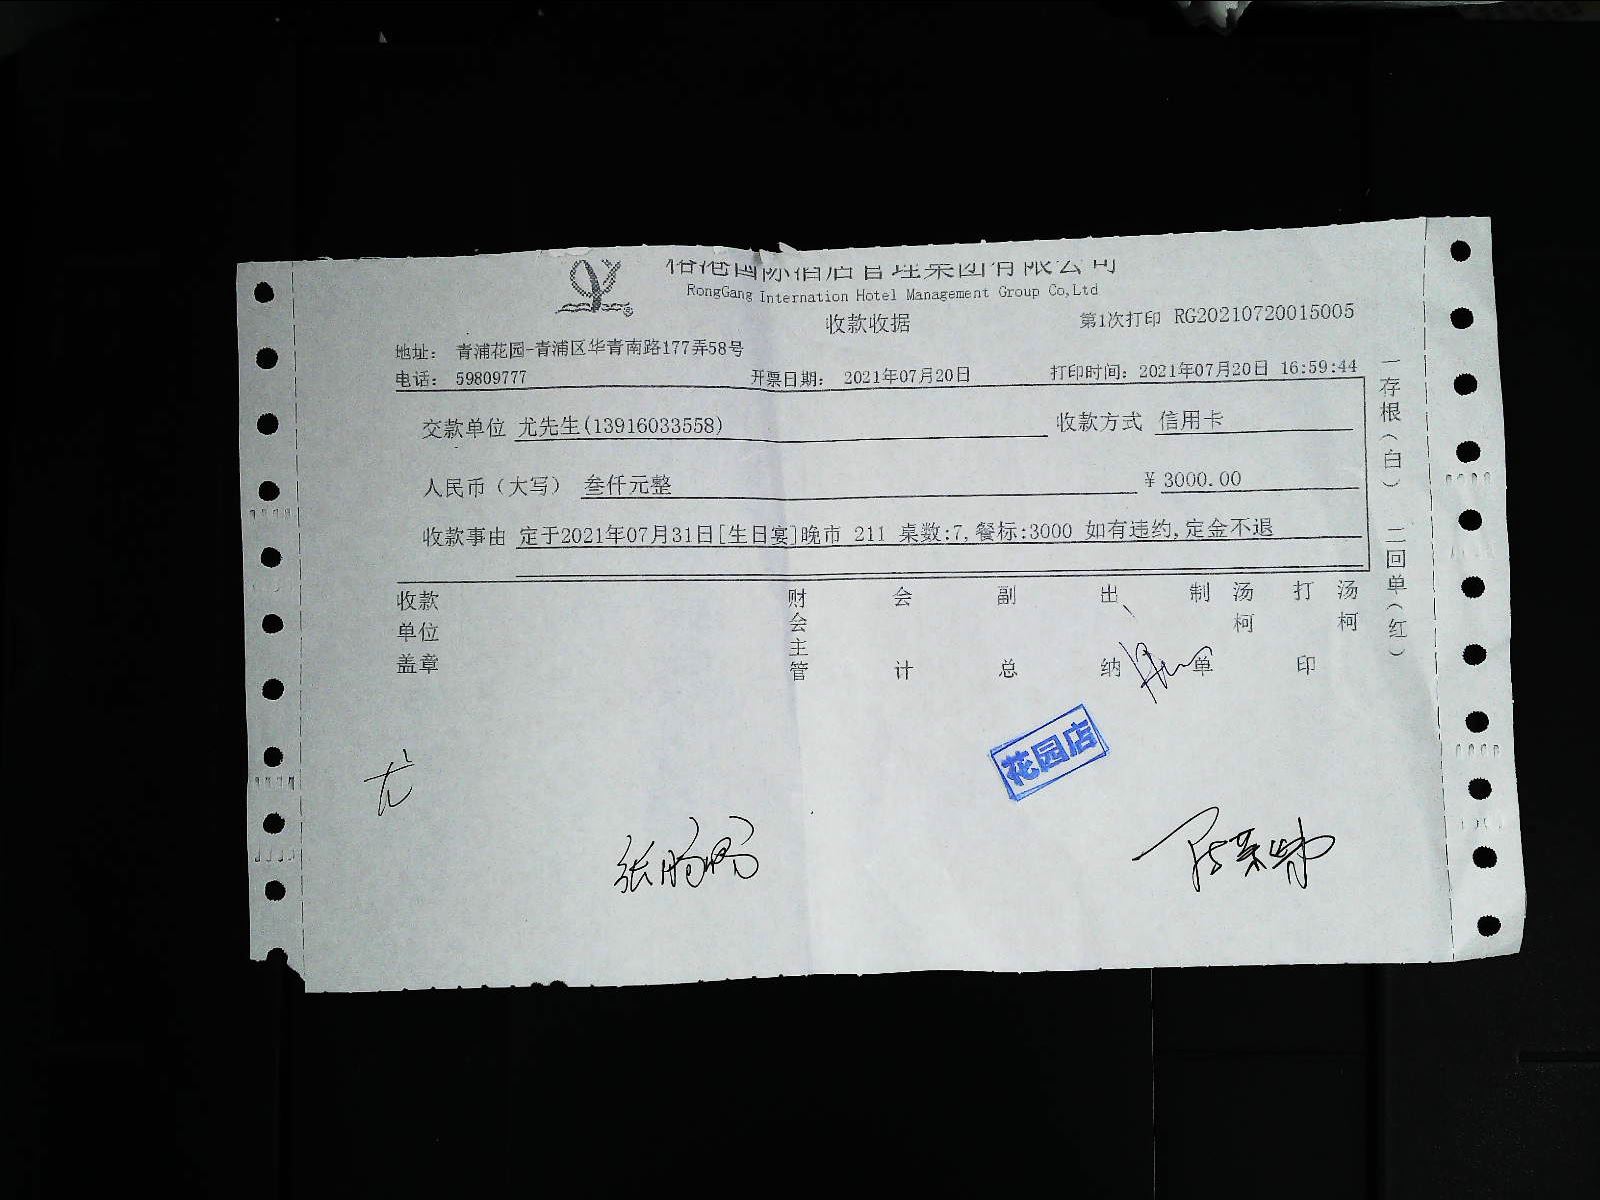 港国际酒店管理集团有限公司
RongGang Internation Hotel Management Group Co,Ltd
收款收据
第1次打印 RG20210720015005
地址： 青浦花园-青浦区华青南路177弄58号
电话： 59809777 开票日期： 2021年07月20日 打印时间：2021年07月20日 16:59:44
交款单位 尤先生(13916033558) 收款方式 信用卡
人民币（大写） 叁仟元整 ￥3000.00
收款事由 定于2021年07月31日[生日宴]晚市 211 桌数:7,餐标:3000 如有违约,定金不退
收款单位盖章
财会主管
会计
副总
出纳
制单
汤柯
打印
汤柯
一存根（白） 二回单（红）
花园店
尤